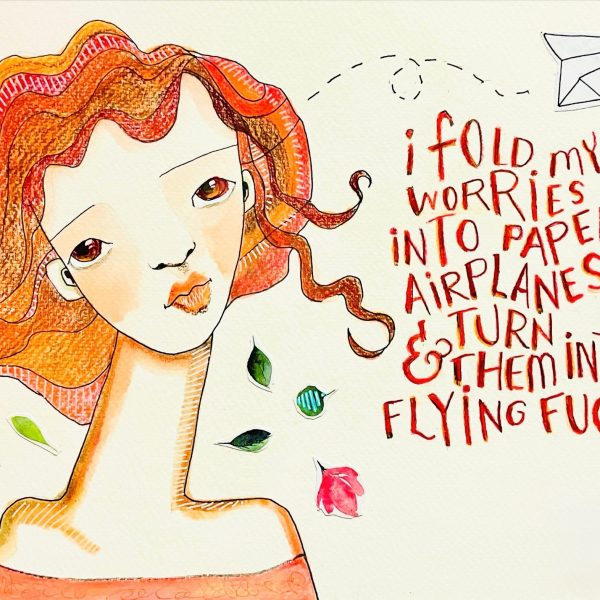 i FOLD MY
WORRIES
iNTO PAPE
AiRPLANES
& TURN
THEM iN
FLYiNG FU